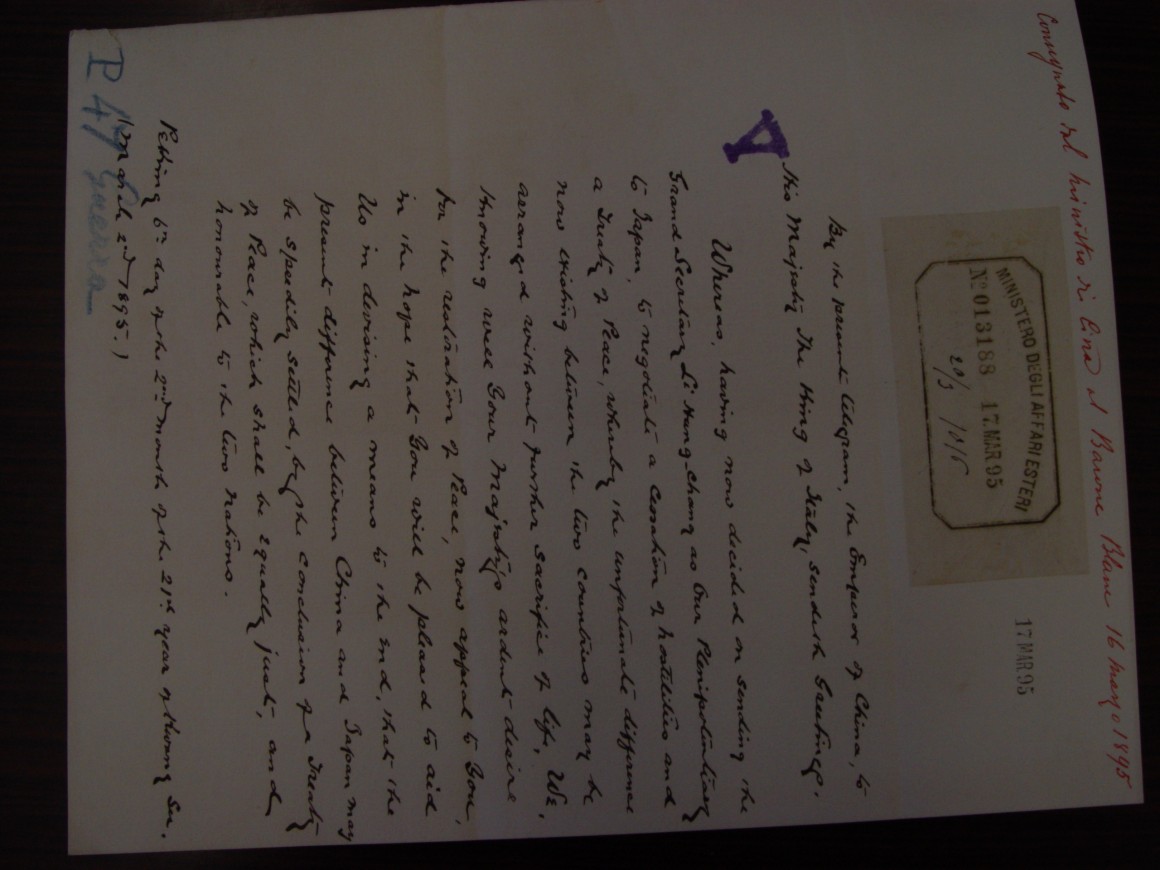 Consegnato dal ministro di Cina al Barone Blanc 16 marzo 1895
MINISTERO DEGLI AFFARI ESTERI
No 013188 17.MAR 95
20/3
17 MAR 95
By the present telegram, the Emperor of China, to
His Majesty The King of Italy, sendeth Greetings.
Whereas, having now decided on sending the
Grand Secretary Li Hung-Chang as Our Plenipotentiary
to Japan, to negotiate a cessation of hostilities and
a Treaty of Peace, whereby the unfortunate difference
now existing between the two countries may be
arranged without further sacrifice of life, We,
knowing well Your Majesty's ardent desire
for the restoration of Peace, now appeal to You,
in the hope that You will be pleased to aid
Us in devising a means to the end, that the
present difference between China and Japan may
be speedily settled, by the conclusion of a Treaty
of Peace, which shall be equally just, and
honourable to the two Nations.
Peking 6th day of the 2nd month of the 21st year of Kwang Su.
(March 2nd 1895.)
P 47 Guerra